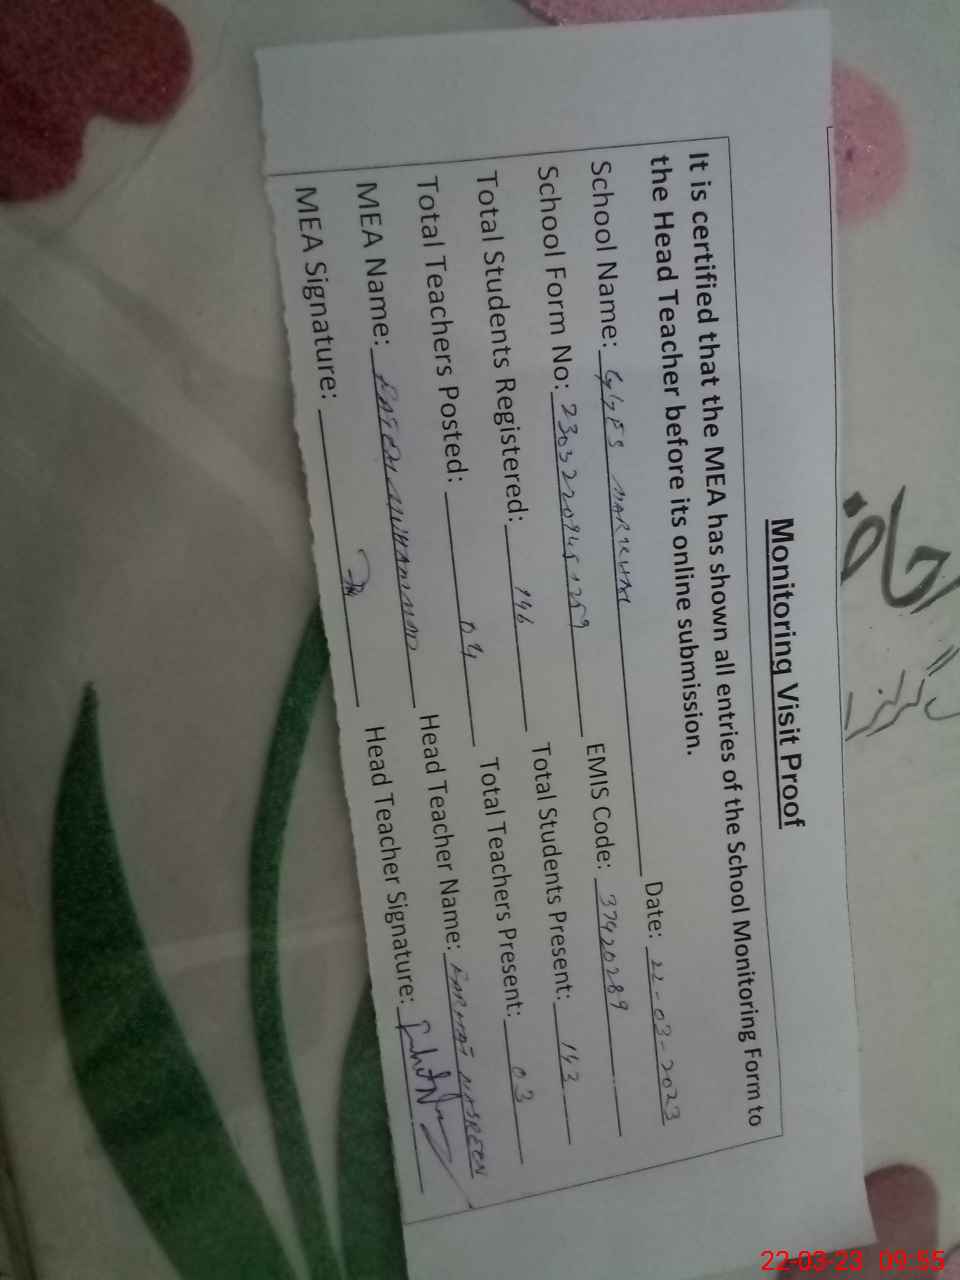 Monitoring Visit Proof
It is certified that the MEA has shown all entries of the School Monitoring Form to
the Head Teacher before its online submission.
School Name: Date: 22-03-2023
School Form No: EMIS Code: 37420289
Total Students Registered: 146 Total Students Present: 142
Total Teachers Posted: 04 Total Teachers Present: 03
MEA Name: MUHAMMAD Head Teacher Name: FARHAT NASREEN
MEA Signature: Head Teacher Signature:
22-03-23 09:55